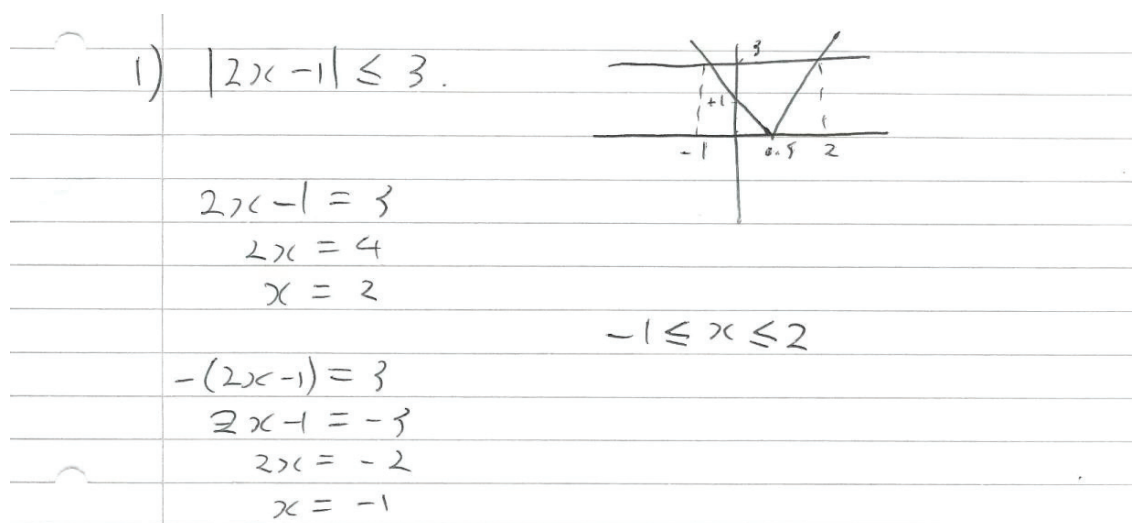 1) |2x-1| ≤ 3.
3
+1
-1 0.5 2
2x-1 = 3
2x = 4
x = 2
-1 ≤ x ≤ 2
-(2x-1) = 3
2x-1 = -3
2x = -2
x = -1